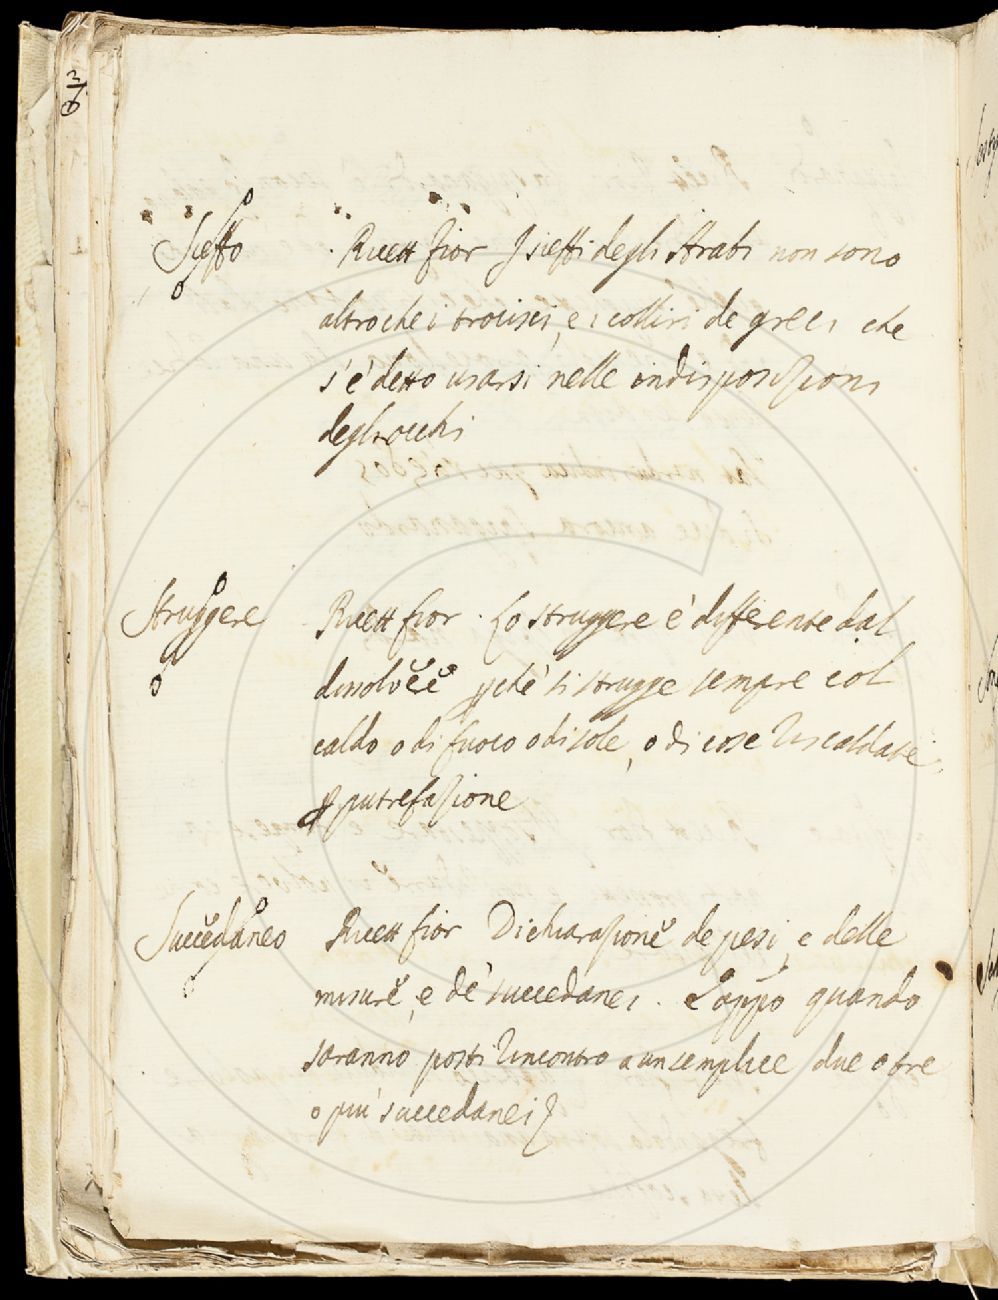 36
Sieffo Ricett fior I sieffi degli Arabi non sono
altro che i trocisci, e i collirii de greci che
s'è detto usarsi nelle indisposizioni
degli occhi
Struggere Ricett fior. Lo struggere è differente dal
dissolvĕrĕ pchè si strugge sempre col
caldo o di fuoco o di sole, o di cose riscaldate
p putrefazione
Succĕdaneo Ricett fior Dichiarazionĕ de pesi, e delle
misurĕ, e de' succedanei. E appo quando
saranno posti rincontro a un semplice due o tre
o più succedanei